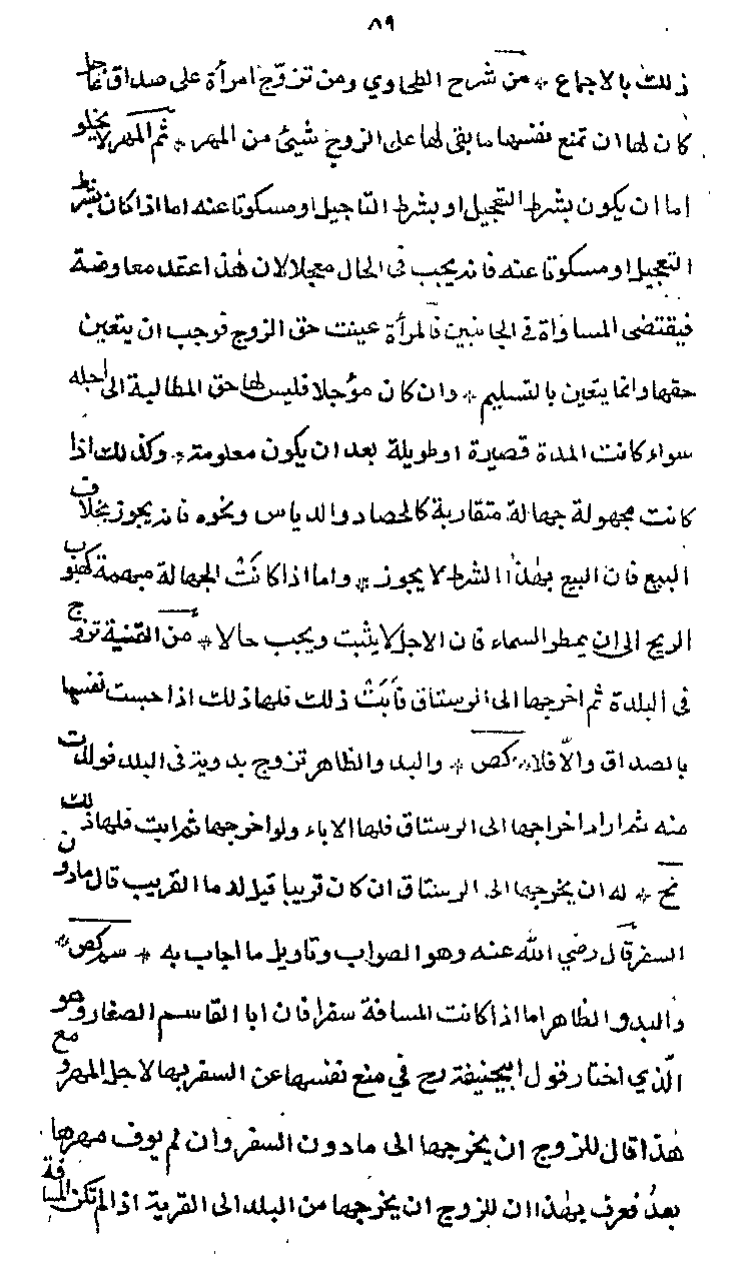 ٨٩
ذلك بالاجماع * من شرح الطحاوي ومن تزوّج امرأة على صداق عاجل
كان لها ان تمنع نفسها ما بقى لها على الزوج شيئ من المهر * ثم المهر لا يخلو
اما ان يكون بشرط التعجيل او بشرط التاجيل او مسكوتا عنه اما اذا كان بشرط
التعجيل او مسكوتا عنه فانه يجب فى الحال معجلا لان هٰذا عقد معاوضة
فيقتضى المساواة فى الجانبين فالمرأة عينت حق الزوج فوجب ان يتعين
حقها وانما يتعين بالتسليم * وان كان مؤجلا فليس لها حق المطالبة الى اجله
سواء كانت المدة قصيرة او طويلة بعد ان يكون معلومة * وكذلك اذا
كانت مجهولة جهالة متقاربة كالحصاد والدياس ونحوه فانه يجوز بخلاف
البيع فان البيع بهٰذا الشرط لا يجوز * واما اذا كانَتْ الجهالة مبهمة كهبوب
الريح الى ان يمطر السماء فان الاجل لا يثبت ويجب حالا * من القنية تزوج
فى البلدة ثم اخرجها الى الرستاق فأبَتْ ذلك فلها ذلك اذا حبست نفسها
بالصداق والّا فلا * كص * والبدو الظاهر تزوج بدوية فى البلد فولدت
منه ثم اراد اخراجها الى الرستاق فلها الاباء ولو اخرجها ثم ابت فلها ذلك
نح * له ان يخرجها الى الرستاق ان كان قريبا قيل له ما القريب قال ما دون
السفر قال رضي الله عنه وهو الصواب وتاويل ما اجاب به * سم كص *
والبدو الظاهر اما اذا كانت المسافة سفرا فان ابا القاسم الصفار وهو
الّذي اختار قول ابيحنيفة رح في منع نفسها عن السفر بها لاجل المهر ومع
هٰذا قال للزوج ان يخرجها الى ما دون السفر وان لم يوف مهرها
بعدُ فعرف بهٰذا ان للزوج ان يخرجها من البلد الى القرية اذا لم تكن المسافة